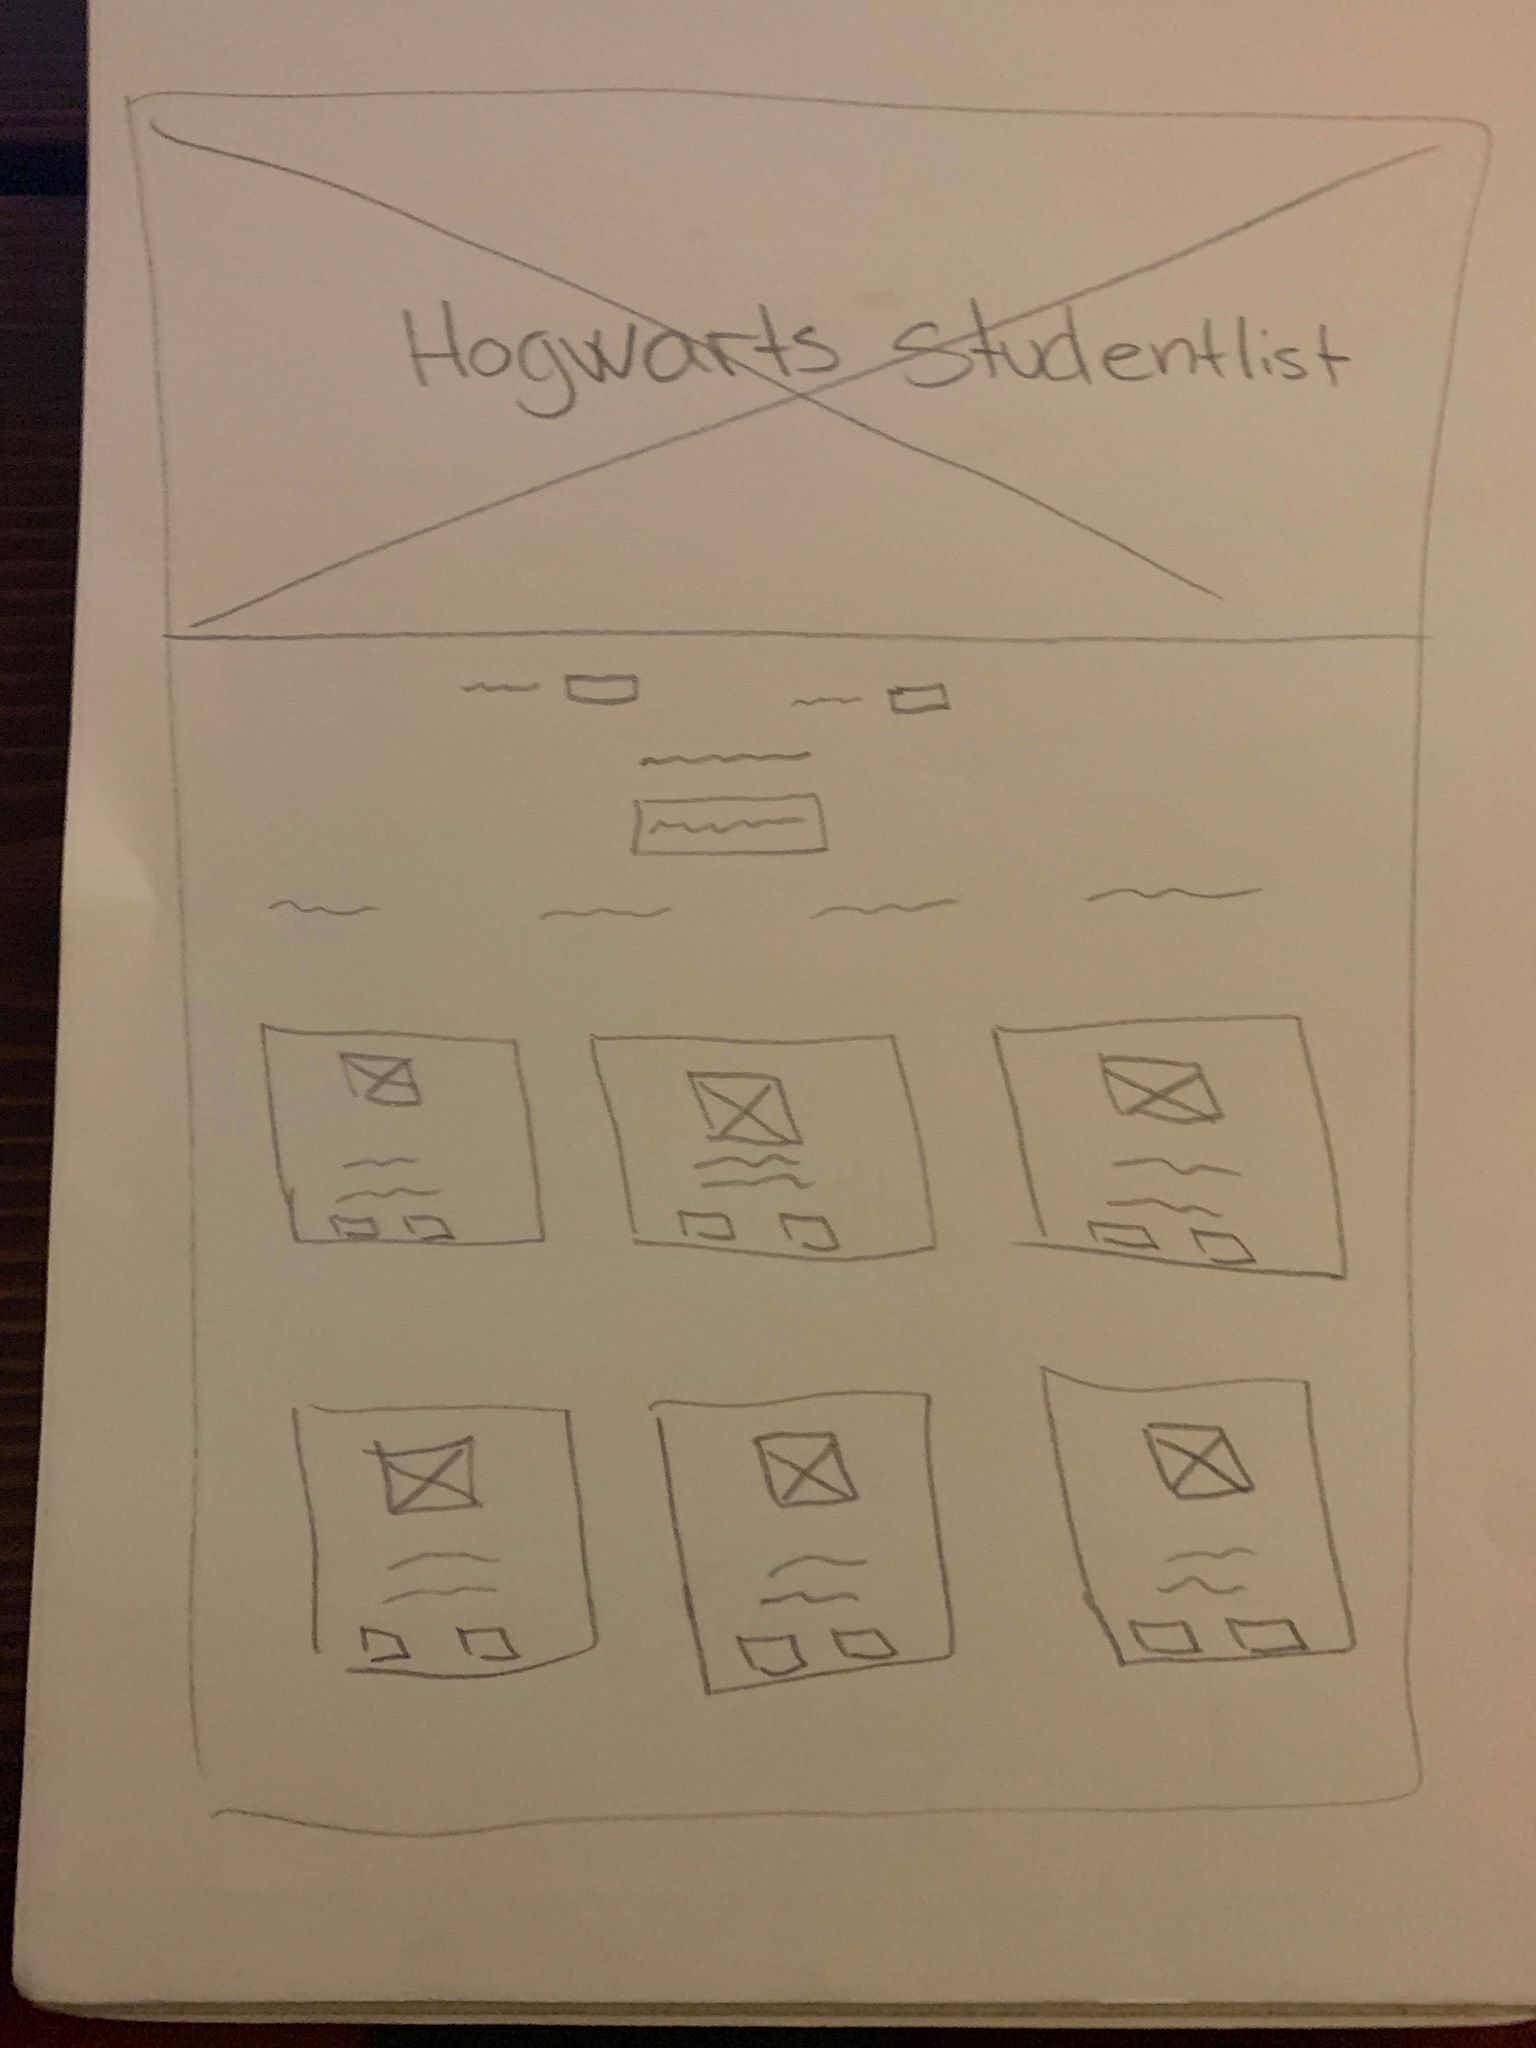 Hogwarts Studentlist